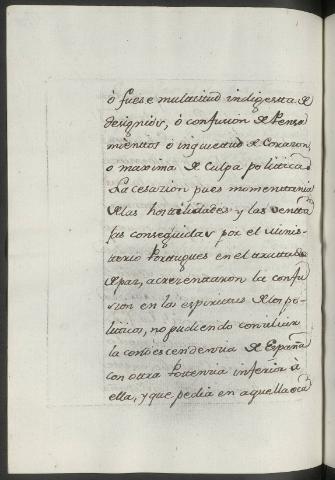 ò fuese multitud indigesta de
designios, ò confusion de Pensa
mientos ò inquietud de Corazon,
o maxima de culpa politica.
La cesasion pues momentania
de las hostilidades y las venta
jas conseguidas por el Minis
terio Portugues en el tratado
de paz, acrecentaron la confu
sion en los espiritus de los po
liticos, no pudiendo conciliar
la condescendencia de España
con otra Potencia inferior à
ella, y que pedia en aquella